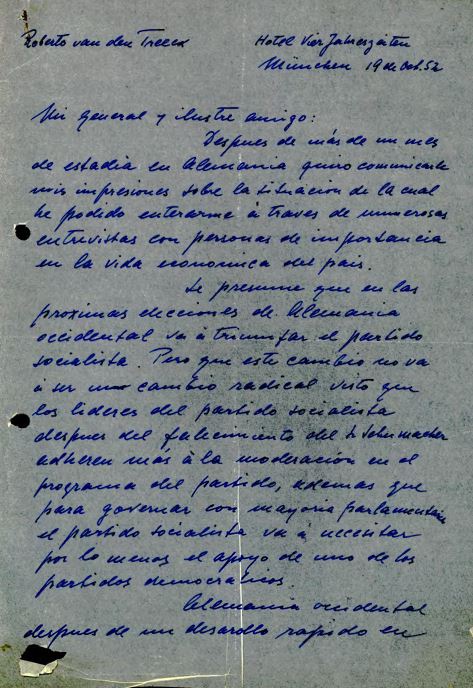 Roberto van den Treeck
Hotel Vier Jahreszeiten
München 19 de Oct. 52
Mi general y ilustre amigo:
Despues de más de un mes
de estadia en Alemania quiro comunicarle
mis impresiones sobre la situacion de la cual
he podido enterarme à traves de numerosas
entrevistas con personas de importancia
en la vida economica del pais.
Se presume que en las
proximas elecciones de Alemania
occidental va à triumfar el partido
socialista. Pero que este cambio no va
à ser un cambio radical visto que
los lideres del partido socialista
despues del falecimiento del Sr Schumacher
adheren más à la moderación en el
programa del partido, ademas que
para governar con mayoria parlamentaria
el partido socialista va a necesitar
por lo menos el apoyo de uno de los
partidos democráticos.
Alemania occidental
despues de un desarollo rapido en